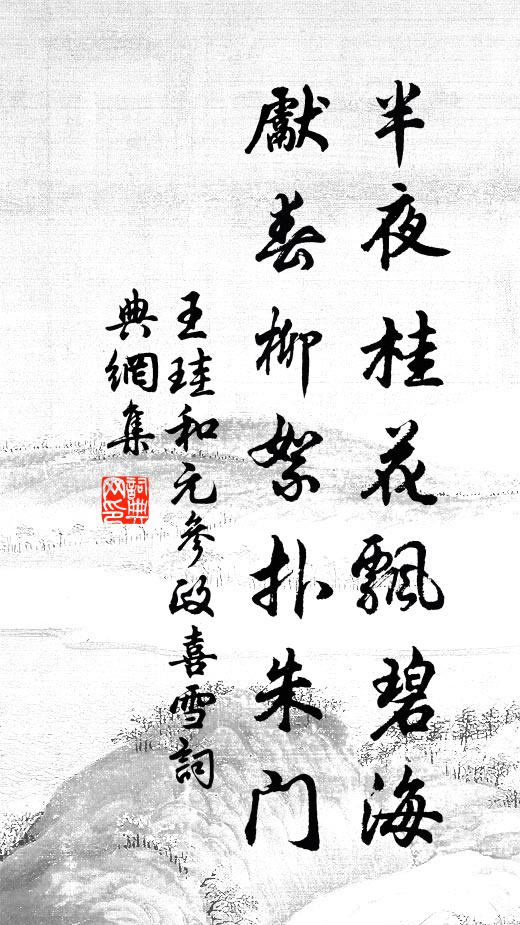 半夜桂花飄碧海
獻春柳絮扑朱门
王珪和元參政喜雪詞
典網集
詞典网印